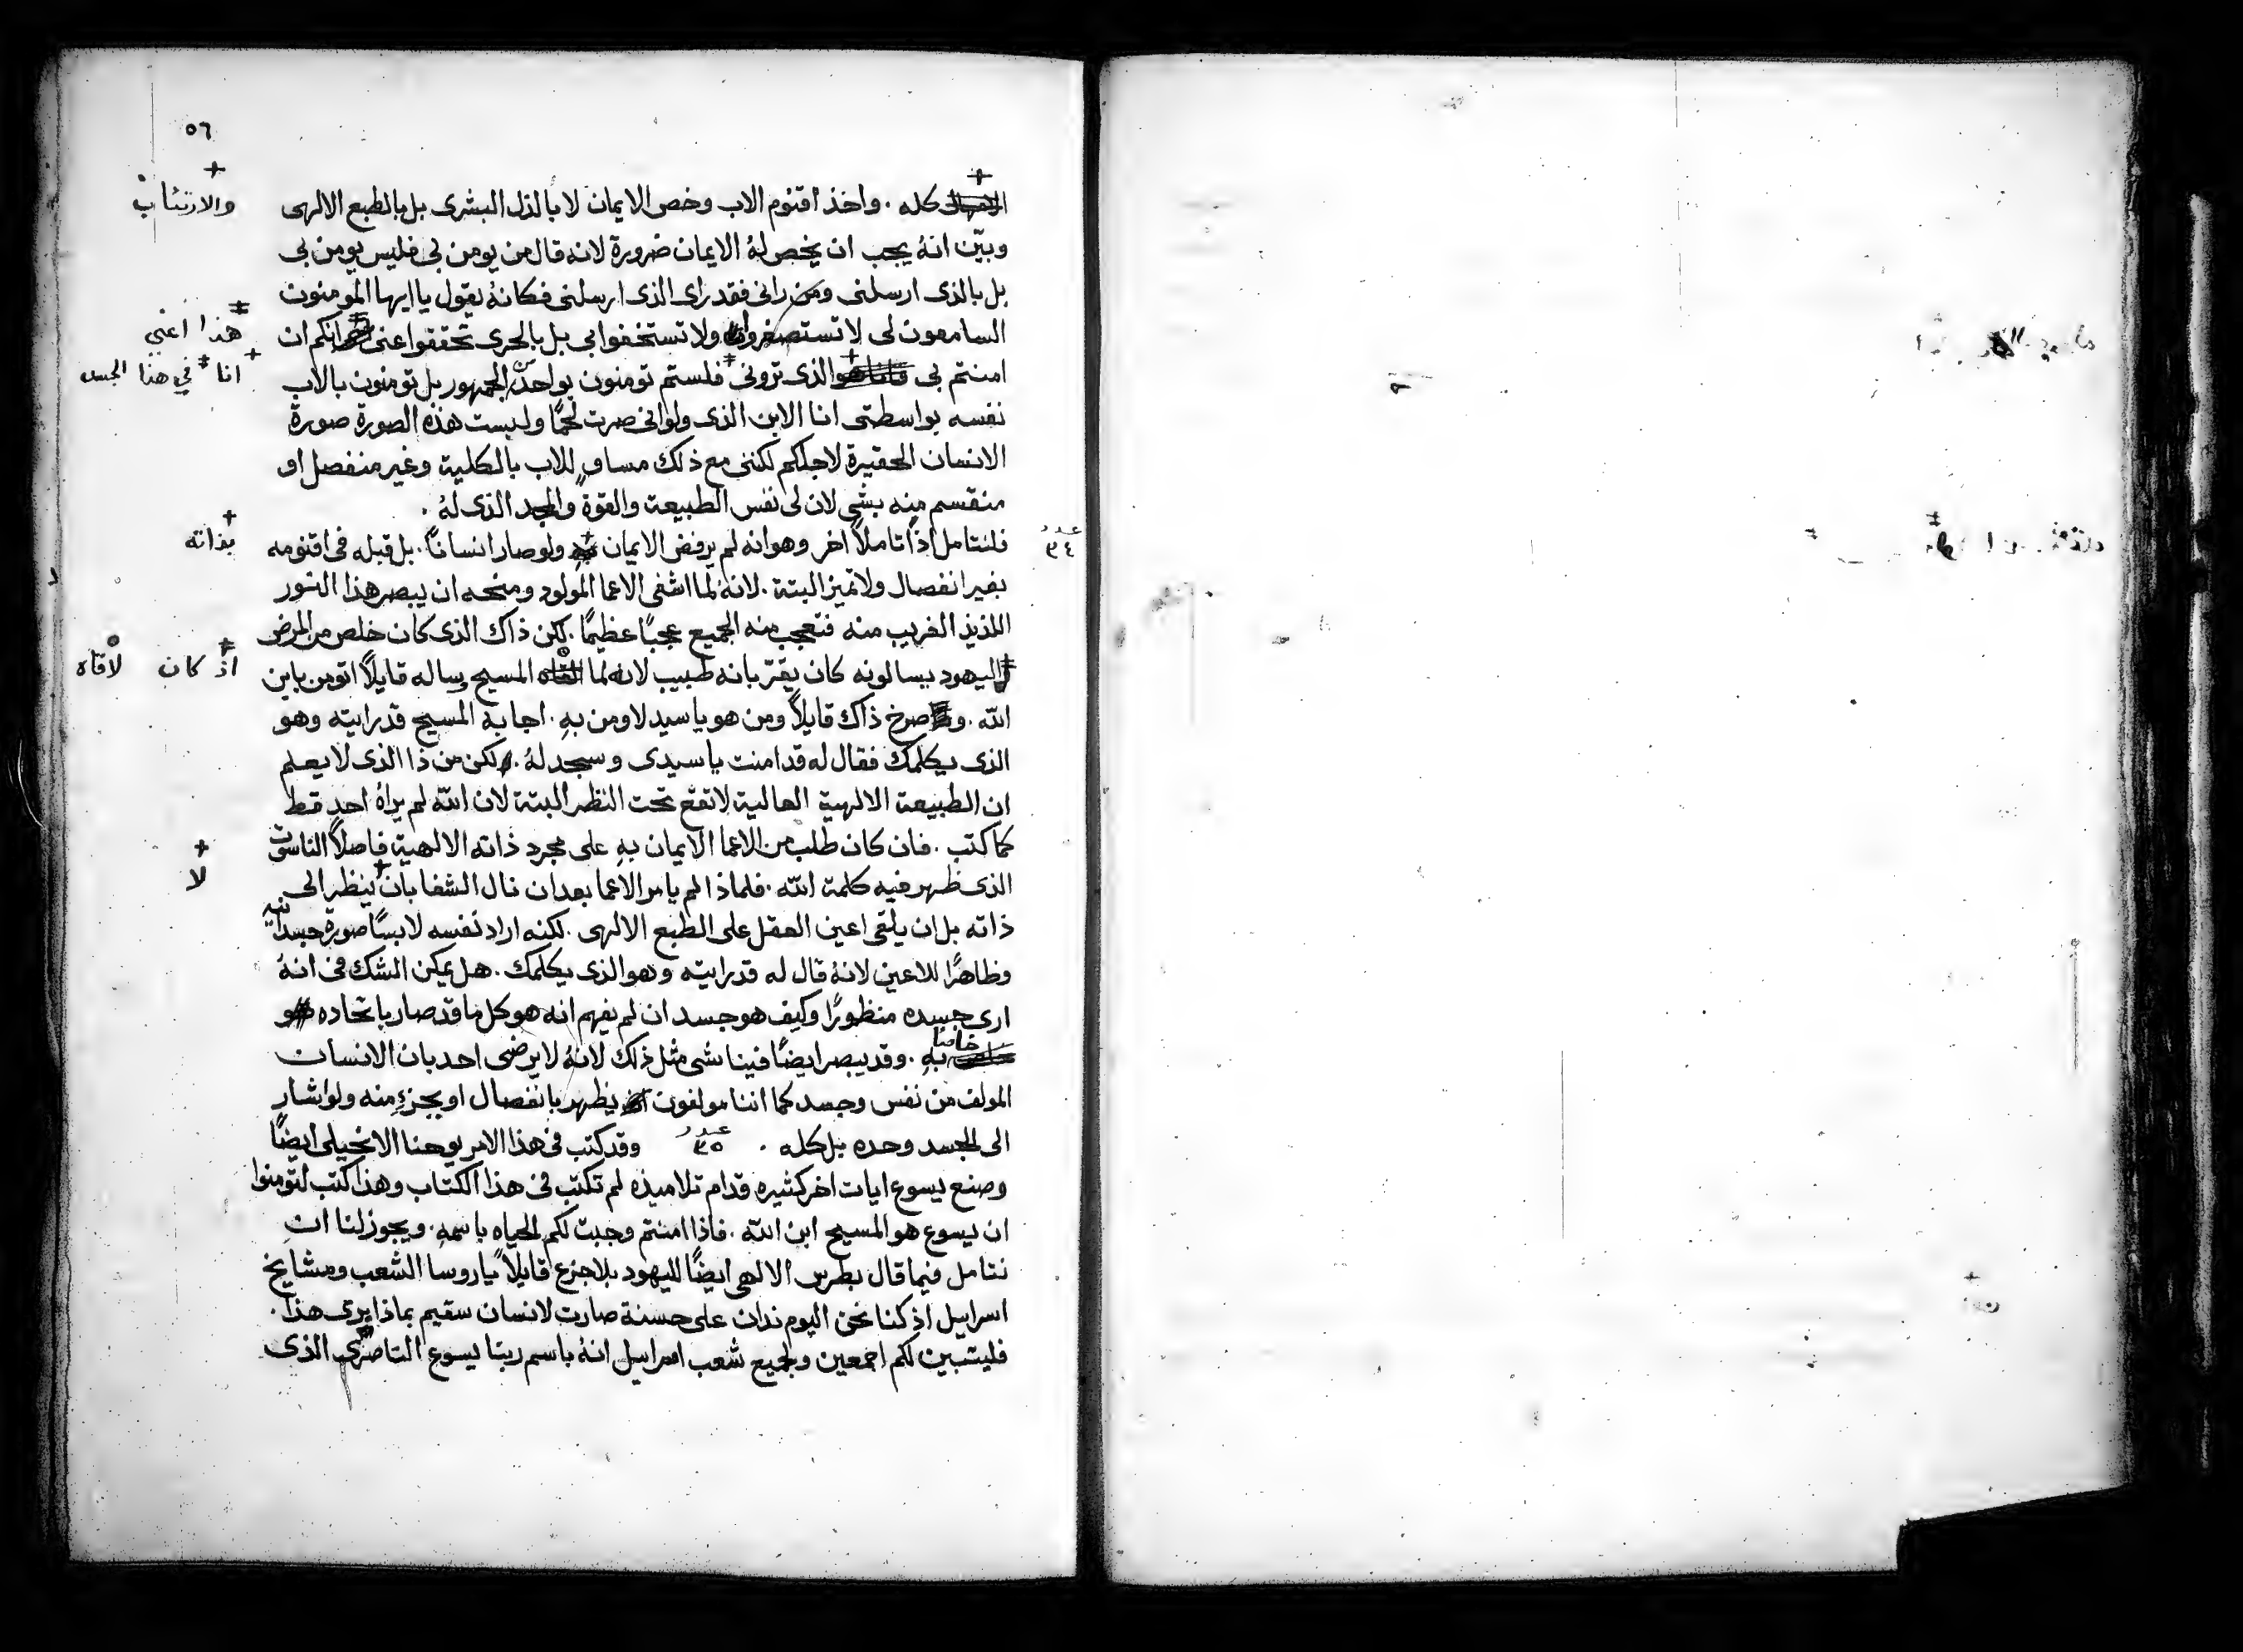 ٥٦
والارتئاب
كله . واخذ اقنوم الاب وخص الايمان لا بالذل البشرى بل بالطبع الالهى
وبيّن انهُ يجب ان يخص لهُ الايمان ضرورة لانه قال من يومن بى فليس يومن بى
بل بالذى ارسلنى ومن رانى فقد راى الذى ارسلنى فكانهُ يقول يا ايها المومنون
هذا اعنى
السامعون لى لا تستصغروا ولا تستخفوا بى بل بالحرى تحققوا عنى انكم ان
انا في هذا الجسد
امنتم بى الذى ترونى فلستم تومنون بواحد من الجمهور بل تومنون بالاب
نفسه بواسطتى انا الابن الذى ولو انى صرت لحمًا ولبست هذه الصورة صورة
الانسان الحقيرة لاجلكم لكننى مع ذلك مساوٍ للاب بالكلية وغير منفصل او
منقسم منه بشى لان لى نفس الطبيعة والقوة والمجد الذى لهُ .
عدد ٣٤
بذاته
فلنتامل اذًا تاملاً اخر وهو انه لم يرفض الايمان ولو صار انسانًا . بل قبله فى اقنومه
بغير انفصال ولا تميز البتة . لانهُ لما اشفى الاعما المولود ومنحه ان يبصر هذا النور
اللذيذ الغريب منه فتعجب منه الجميع عجبًا عظيمًا . لكن ذاك الذى كان خلص من المرض
اذ كان لاقاه
اليهود يسالونه كان يقرّ بانه طبيب لانه لما المسيح وساله قايلاً اتومن بابن
الله . و صرخ ذاك قايلاً ومن هو يا سيد لاومن بهِ . اجابه المسيح قد رايته وهو
الذى يكلمك فقال له قد امنت يا سيدى وسجد لهُ . لكن من ذا الذى لا يعلم
ان الطبيعة الالهية العالية لا تقع تحت النظر البتة لان الله لم يراهُ احد قط
كما كتب . فان كان طلب من الاعما الايمان بهِ على مجرد ذاته الالهية فاصلاً الناسوت
لا
الذى ظهر فيه كلمة الله . فلماذا لم يامر الاعما بعد ان نال الشفا بان ينظر الى
ذاته بل ان يلقى اعين العقل على الطبع الالهى . لكنه اراد نفسه لابسًا صورة جسدانيه
وظاهرًا للاعين لانهُ قال له قد رايته وهو الذى يكلمك . هل يمكن الشك فى انهُ
ارى جسده منظورًا وكيف هو جسد ان لم يفهم انه هو كل ما قد صار باتحاده
خاصا بهِ . وقد يبصر ايضًا فينا شى مثل ذلك لانهُ لا يرضى احد بان الانسان
المولف من نفس وجسد كما اننا مولفون يظهر بانفصال او بجزءٍ منه ولو اشار
الى الجسد وحده بل كله . عدد ٣٥ وقد كتب فى هذا الامر يوحنا الانجيلى ايضًا
وصنع يسوع ايات اخر كثيره قدام تلاميذه لم تكتب فى هذا الكتاب وهذا كتب لتومنوا
ان يسوع هو المسيح ابن الله . فاذا امنتم وجبت لكم الحياه باسمهِ . ويجوز لنا ان
نتامل فيما قال بطرس الالهى ايضًا لليهود بلا جزع قايلاً يا روسا الشعب ومشايخ
اسراييل اذ كنا نحن اليوم ندان على حسنة صارت لانسان سقيم بماذا برى هذا .
فليتبين لكم اجمعين ولجميع شعب اسراييل انهُ باسم ربنا يسوع الناصرى الذى